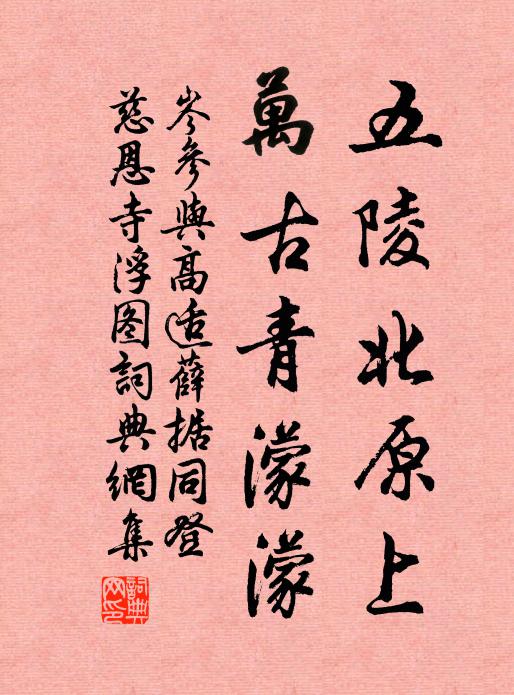 五陵北原上
萬古青濛濛
岑參與高适薛據同登
慈恩寺浮图詞典網集
詞典网印